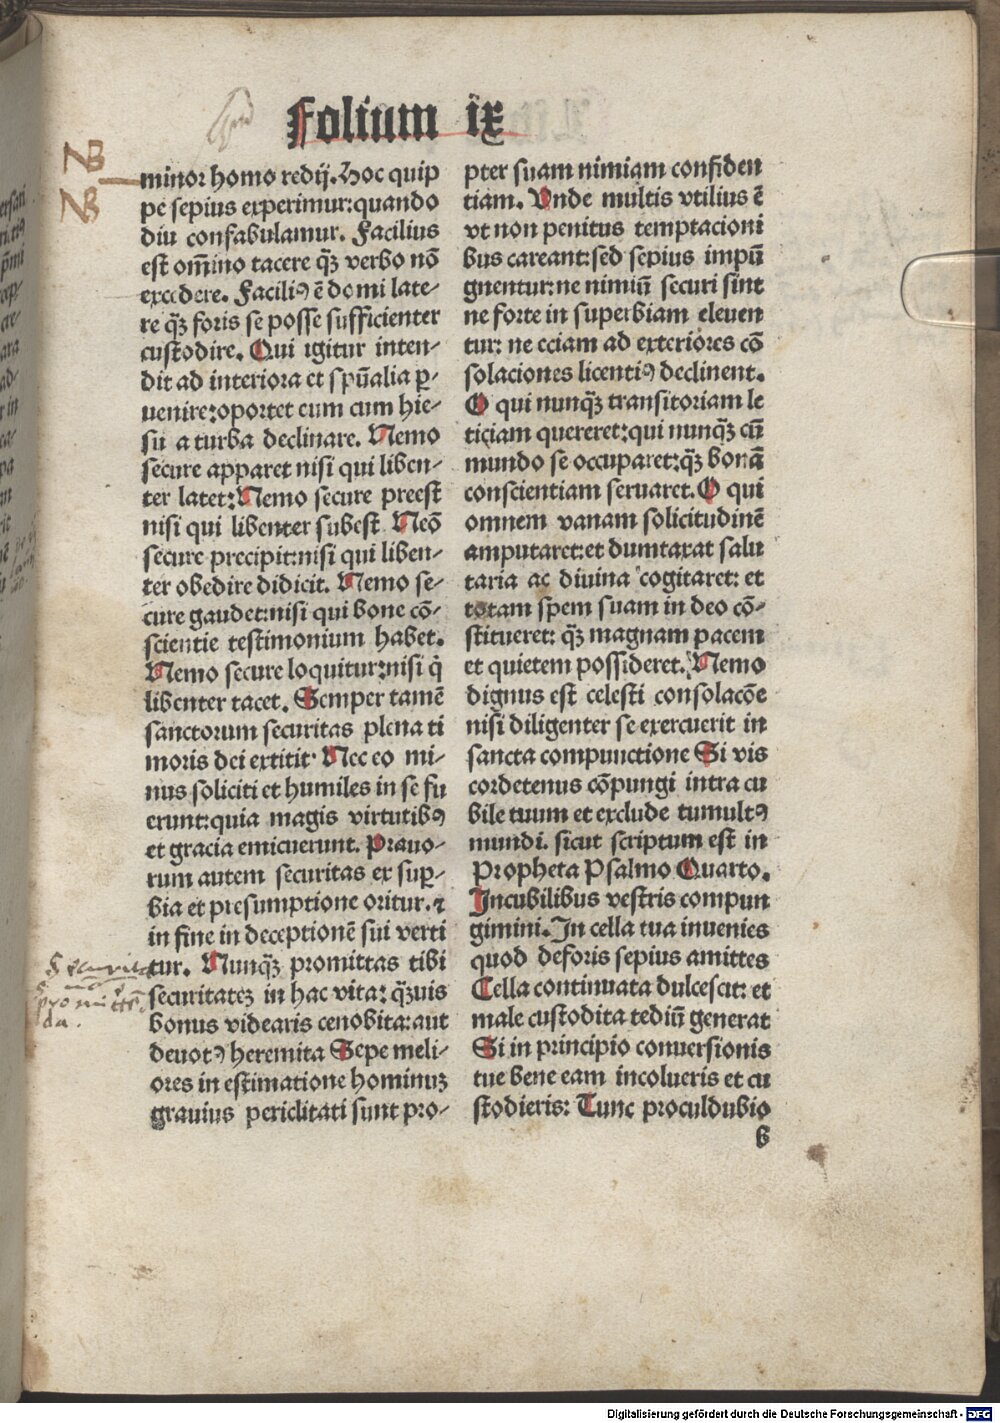 Folium ix
NB
NB
minor homo redij. Hoc quip
pe sepius experimur: quando
diu confabulamur. Facilius
est om̄ino tacere qȝ̄ verbo nō
excedere. Faciliꝰ ē domi late-
re qȝ̄ foris se posse sufficienter
custodire. Qui igitur inten-
dit ad interiora et spūalia ꝑ-
uenire: oportet eum cum hie-
su a turba declinare. Nemo
secure apparet nisi qui liben-
ter latet: Nemo secure preest
nisi qui libenter subest. Neō
secure precipit: nisi qui liben-
ter obedire didicit. Nemo se-
cure gaudet: nisi qui bone cō-
scientie testimonium habet.
Nemo secure loquitur: nisi q̇
libenter tacet. Semper tamē
sanctorum securitas plena ti
moris dei extitit. Nec eo mi-
nus soliciti et humiles in se fu
erunt: quia magis virtutibꝰ
et gracia emicuerunt. Prauo-
rum autem securitas ex suꝑ-
bia et presumptione oritur. ⁊
in fine in deceptionē sui verti
tur. Nunqȝ̄ promittas tibi
securitateȝ in hac vita: qȝ̄uis
bonus videaris cenobita: aut
deuotꝰ heremita Sepe meli-
ores in estimatione hominuȝ
grauius periclitati sunt pro-
Securitas
nō
promittē
da.
pter suam nimiam confiden
tiam. Unde multis vtilius ē
vt non penitus temptacioni
bus careant: sed sepius impū
gnentur: ne nimiū securi sint
ne forte in superbiam eleuen
tur: ne eciam ad exteriores cō
solaciones licentiꝰ declinent.
O qui nunqȝ̄ transitoriam le
ticiam quereret: qui nunqȝ̄ cū
mundo se occuparet: qȝ̄ bonā
conscientiam seruaret. O qui
omnem vanam solicitudinē
amputaret: et dumtaxat salu
taria ac diuina cogitaret: et
totam spem suam in deo cō-
stitueret: qȝ̄ magnam pacem
et quietem possideret. Nemo
dignus est celesti consolacōe
nisi diligenter se exercuerit in
sancta compunctione Si vis
cordetenus cōpungi intra cu
bile tuum et exclude tumultꝰ
mundi. sicut scriptum est in
Propheta Psalmo Quarto.
Incubilibus vestris compun
gimini. In cella tua inuenies
quod deforis sepius amittes
Cella continuata dulcescit: et
male custodita tediū generat
Si in principio conuersionis
tue bene eam incolueris et cu
stodieris: Tunc proculdubio
b
Digitalisierung gefördert durch die Deutsche Forschungsgemeinschaft - DFG